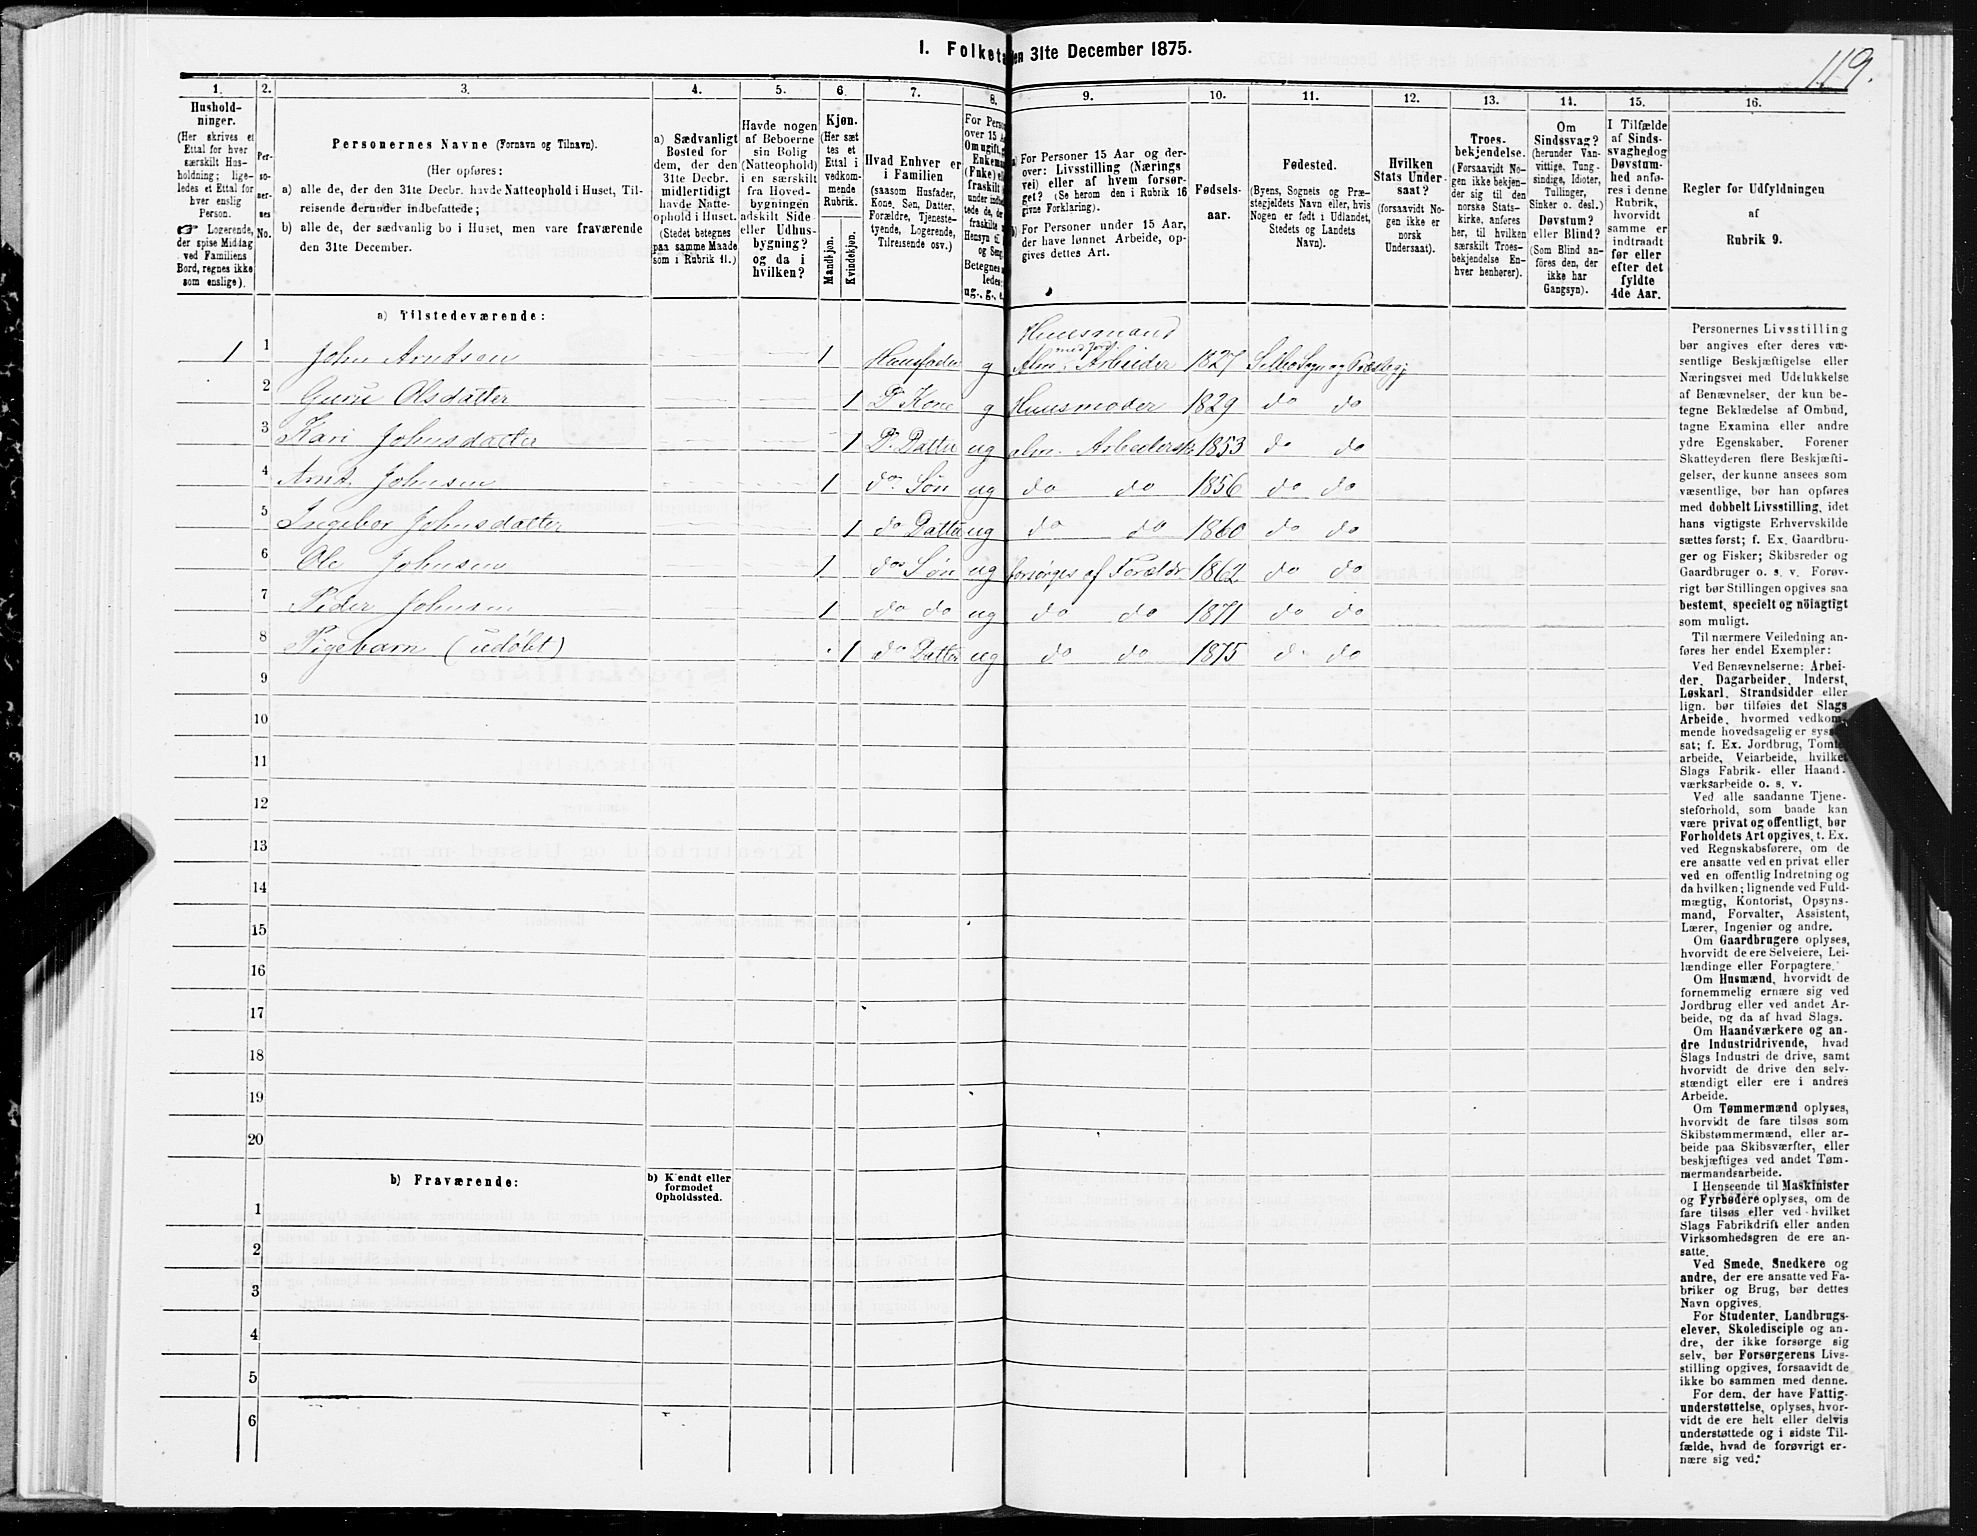 1. Folketæ
en 31te December 1875.
119.
1.
2.
3.
4.
5.
6.
7.
8.
9.
10.
11.
12.
13.
14.
15.
16.
Hushold-
ninger.
(Her skrives et
Ettal for hver
særskilt Hus-
holdning; lige-
ledes et Ettal for
hver enslig
Person.
☞ Logerende,
der spise Middag
ved Familiens
Bord, regnes ikke
som enslige).
Per-
so-
ner-
nes
No.
Personernes Navne (Fornavn og Tilnavn).
(Her opføres:
a) alle de, der den 31te Decbr. havde Natteophold i Huset, Til-
reisende derunder indbefattede;
b) alle de, der sædvanlig bo i Huset, men vare fraværende
den 31te December.
a) Sædvanligt
Bosted for
dem, der den
31te Decbr.
midlertidigt
havde Natte-
ophold i Huset.
(Stedet betegnes
paa samme Maade
som i Rubrik 11.)
Havde nogen
af Beboerne
sin Bolig
(Natteophold)
i en særskilt
fra Hoved-
bygningen
adskilt Side-
eller Udhus-
bygning?
og da i
hvilken?
Kjøn.
(Her sæt
tes et
Ettal i
vedkom-
mende
Rubrik.
Mandkjøn.
Kvindekjøn.
Hvad Enhver er
i Familien
(saasom Husfader,
Kone, Søn, Datter,
Forældre, Tjeneste-
tyende, Logerende,
Tilreisende osv.)
For Perso
over 15 A
Om ugift, g
Enkema
(Enke) el
fraskilt
under indbe
tede de, de
fraskilte
Hensyn ti
og Seng
Betegnes
ledes:
ug., g., e.
a) For Personer 15 Aar og der-
over: Livsstilling (Nærings
vei) eller af hvem forsør-
get? (Se herom den i Rubrik 16
givne Forklaring).
b) For Personer under 15 Aar,
der have lønnet Arbeide, op-
gives dettes Art.
Fødsels-
aar.
Fødested.
(Byens, Sognets og Præ-
stegjeldets Navn eller, hvis
Nogen er født i Udlandet,
Stedets og Landets
Navn).
Hvilken
Stats Under-
saat?
(forsaavidt No-
gen ikke er
norsk
Undersaat).
Troes-
bekjendelse.
(Forsaavidt No-
gen ikke bekjen-
der sig til den
norske Stats-
kirke, anføres
her, til hvilken
særskilt Troes-
bekjendelse En-
hver henhører).
Om
Sindssvag?
(herunder Van-
vittige, Tung-
sindige, Idioter,
Tullinger,
Sinker o. desl.)
Døvstum?
eller Blind?
(Som Blind an-
føres den, der
ikke har
Gangsyn).
I Tilfælde
af Sinds-
svaghed og
Døvstum-
hed anfø-
res i denne
Rubrik,
hvorvidt
samme er
indtraadt
før eller
efter det
fyldte
4de Aar.
Regler for Udfyldningen
af
Rubrik 9.
a) Tilstedeværende:
Huusmand
med Jord.
1 1 John Arntsen 1 Huusfader g Alm. Arbeider 1827 Selbo Sogn og Præstegj
2 Guru Olsdatter 1 D. Kone g Huusmoder 1829 do do
3 Kari Johnsdatter 1 D. Datter ug alm. Arbeidersk 1853 do do
4 Arnt Johnsen 1 do Søn ug do do 1856 do do
5 Ingebor Johnsdatter 1 do Datter ug do do 1860 do do
6 Ole Johnsen 1 do Søn ug forsørges af Forældr 1862 do do
7 Peder Johnsen 1 do do ug do do 1871 do do
8 Pigebarn (udøbt) 1 do Datter ug do do 1875 do do
9
10
11
12
13
14
15
16
17
18
19
20
b) Fraværende:
b) Kjendt eller
formodet
Opholdssted.
1
2
3
4
5
6
Personernes Livsstilling
bør angives efter deres væ-
sentlige Beskjæftigelse eller
Næringsvei med Udelukkelse
af Benævnelser, der kun be-
tegne Beklædelse af Ombud,
tagne Examina eller andre
ydre Egenskaber. Forener
Skatteyderen flere Beskjæfti-
gelser, der kunne ansees som
væsentlige, bør han opføres
med dobbelt Livsstilling, idet
hans vigtigste Erhvervskilde
sættes først; f. Ex. Gaardbru-
ger og Fisker; Skibsreder og
Gaardbruger o. s. v. Forøv-
rigt bør Stillingen opgives saa
bestemt, specielt og nöiagtigt
som muligt.
Til nærmere Veiledning an-
føres her endel Exempler:
Ved Benævnelserne: Arbei-
der, Dagarbeider, Inderst,
Løskarl, Strandsidder eller
lign. bør tilføies det Slags
Arbeide, hvormed vedkom-
mende hovedsagelig er syssel
sat; f. Ex. Jordbrug, Tomte
arbeide, Veiarbeide, hvilket
Slags Fabrik- eller Haand-
værksarbeide o. s. v.
Ved alle saadanne Tjene-
steforhold, som baade kan
være privat og offentligt, bør
Forholdets Art opgives, t. Ex.
ved Regnskabsførere, om de
ere ansatte ved en privat eller
ved en offentlig Indretning og
da hvilken; lignende ved Fuld-
mægtig, Kontorist, Opsyns-
mand, Forvalter, Assistent,
Lærer, Ingeniør og andre.
Om Gaardbrugere oplyses,
hvorvidt de ere Selveiere, Lei-
lændinge eller Forpagtere.
Om Husmænd, hvorvidt de
fornemmelig ernære sig ved
Jordbrug eller ved andet Ar-
beide, og da af hvad Slags.
Om Haandværkere og an-
dre Industridrivende, hvad
Slags Industri de drive, samt
hvorvidt de drive den selv-
stændigt eller ere i andres
Arbeide.
Om Tømmermænd oplyses,
hvorvidt de fare tilsøs som
Skibstømmermænd, eller ar-
beide paa Skibsværfter, eller
beskjæftiges ved andet Tøm-
mermandsarbeide.
I Henseende til Maskinister
og Fyrbødere oplyses, om de
fare tilsøs eller ved hvilket
Slags Fabrikdrift eller anden
Virksomhedsgren de ere an-
satte.
Ved Smede, Snedkere og
andre, der ere ansatte ved Fa-
briker og Brug, bør dettes
Navn opgives.
For Studenter, Landbrugs-
elever, Skoledisciple og an-
dre, der ikke forsørge sig
selv, bør Forsørgerens Livs-
stilling opgives, forsaavidt de
ikke bo sammen med denne.
For dem, der have Fattig-
understøttelse, oplyses, hvor-
vidt de ere helt eller delvis
understøttede og i sidste Til-
fælde, hvad de forøvrigt er-
nære sig ved.